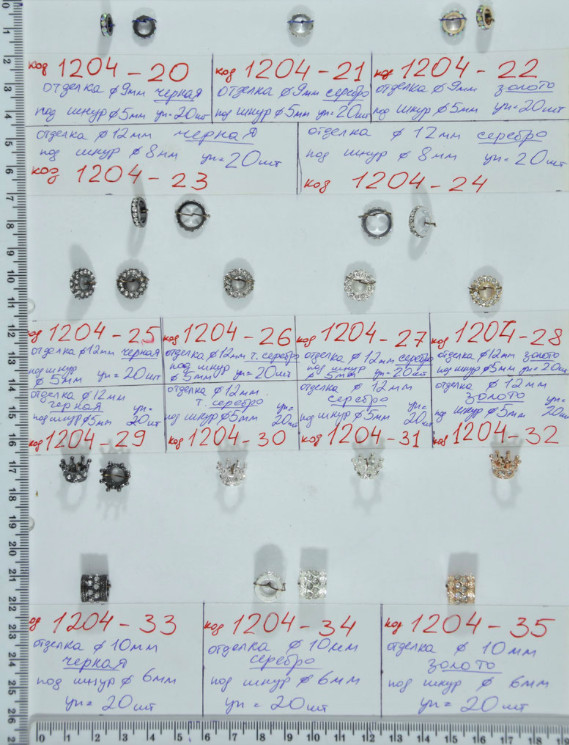 код 1204-20
отделка ф9мм черная
под шнур ф5мм уп=20шт
код 1204-21
отделка ф9мм серебро
под шнур ф5мм уп=20шт
код 1204-22
отделка ф9мм золото
под шнур ф5мм уп=20шт
отделка ф12мм черная
под шнур ф8мм уп=20шт
код 1204-23
отделка ф12мм серебро
под шнур ф8мм уп=20шт
код 1204-24
код 1204-25
отделка ф12мм черная
под шнур
ф5мм уп=20шт
код 1204-26
отделка ф12мм т.серебро
под шнур
ф5мм уп=20шт
код 1204-27
отделка ф12мм серебро
под шнур
ф5мм уп=20шт
код 1204-28
отделка ф12мм золото
под шнур ф5мм уп=20шт
отделка ф12мм
черная уп=
под шнур ф5мм 20шт
код 1204-29
отделка ф12мм
т.серебро уп=
под шнур ф5мм 20шт
код 1204-30
отделка ф12мм
серебро уп=
под шнур ф5мм 20шт
код 1204-31
отделка ф12мм
золото уп=
под шнур ф5мм 20шт
код 1204-32
код 1204-33
отделка ф10мм
черная
под шнур ф6мм
уп=20шт
код 1204-34
отделка ф10мм
серебро
под шнур ф6мм
уп=20шт
код 1204-35
отделка ф10мм
золото
под шнур ф6мм
уп=20шт
0 1 2 3 4 5 6 7 8 9 10 11 12 13 14 15 16 17 18 19